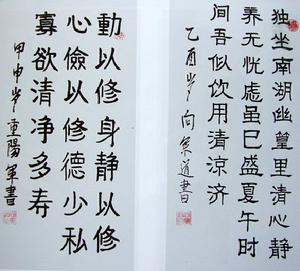 独坐南湖幽篁里清心静
养无忧虑虽已盛夏午时
间吾似饮用清凉济
乙酉岁向军道書
動以修身静以修
心儉以修德少私
寡欲清净多寿
甲申岁重陽军書